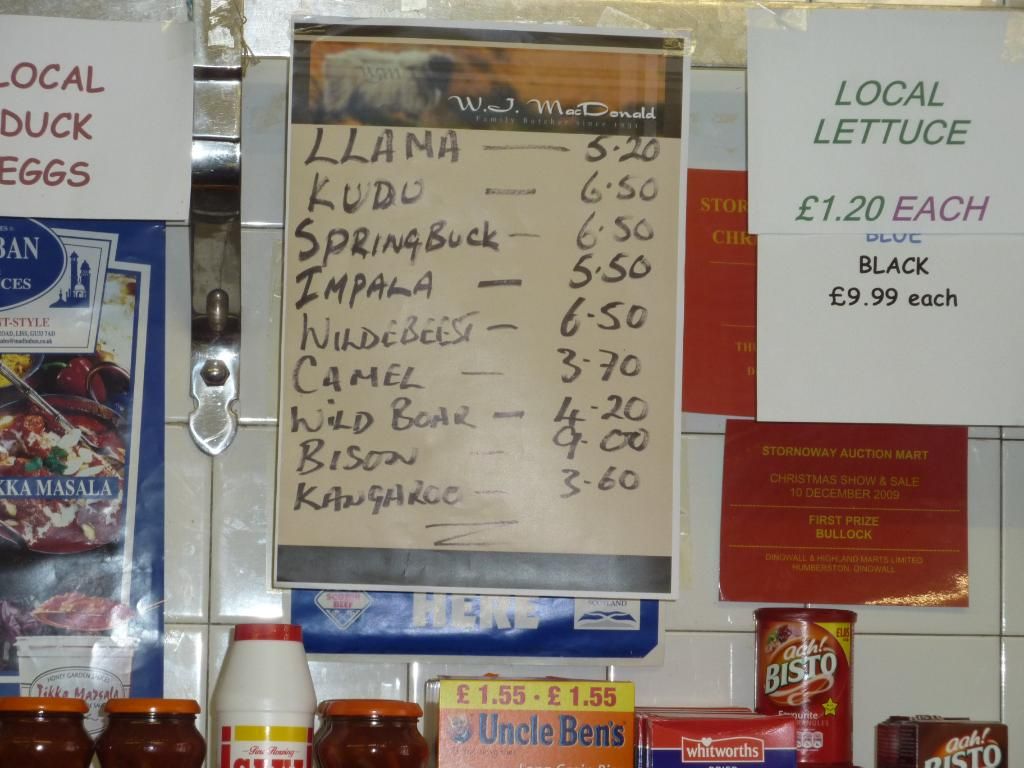 LOCAL
DUCK
EGGS
W.J. MacDonald
Family Butcher since 1931
LLAMA — 5.20
KUDU — 6.50
SPRINGBUCK — 6.50
IMPALA — 5.50
WILDEBEEST — 6.50
CAMEL — 3-70
WILD BOAR — 4-20
BISON — 9.00
KANGAROO — 3-60
LOCAL
LETTUCE
£1.20 EACH
BLUE
BLACK
£9.99 each
STOR
CHR
STORNOWAY AUCTION MART
CHRISTMAS SHOW & SALE
10 DECEMBER 2009
FIRST PRIZE
BULLOCK
DINGWALL & HIGHLAND MARTS LIMITED
HUMBERSTON, DINGWALL
BAN
CES
T-STYLE
KKA MASALA
HONEY GARDEN SAUCES
Tikka Masala
SCOTCH
BEEF
HERE
SCOTLAND
£1.55 - £1.55
Uncle Ben's
Long Grain Ri
whitworths
DRIED
£1.85
aah!
BISTO
Favourite
GRANULES
aah!
BISTO
Fine Flowing